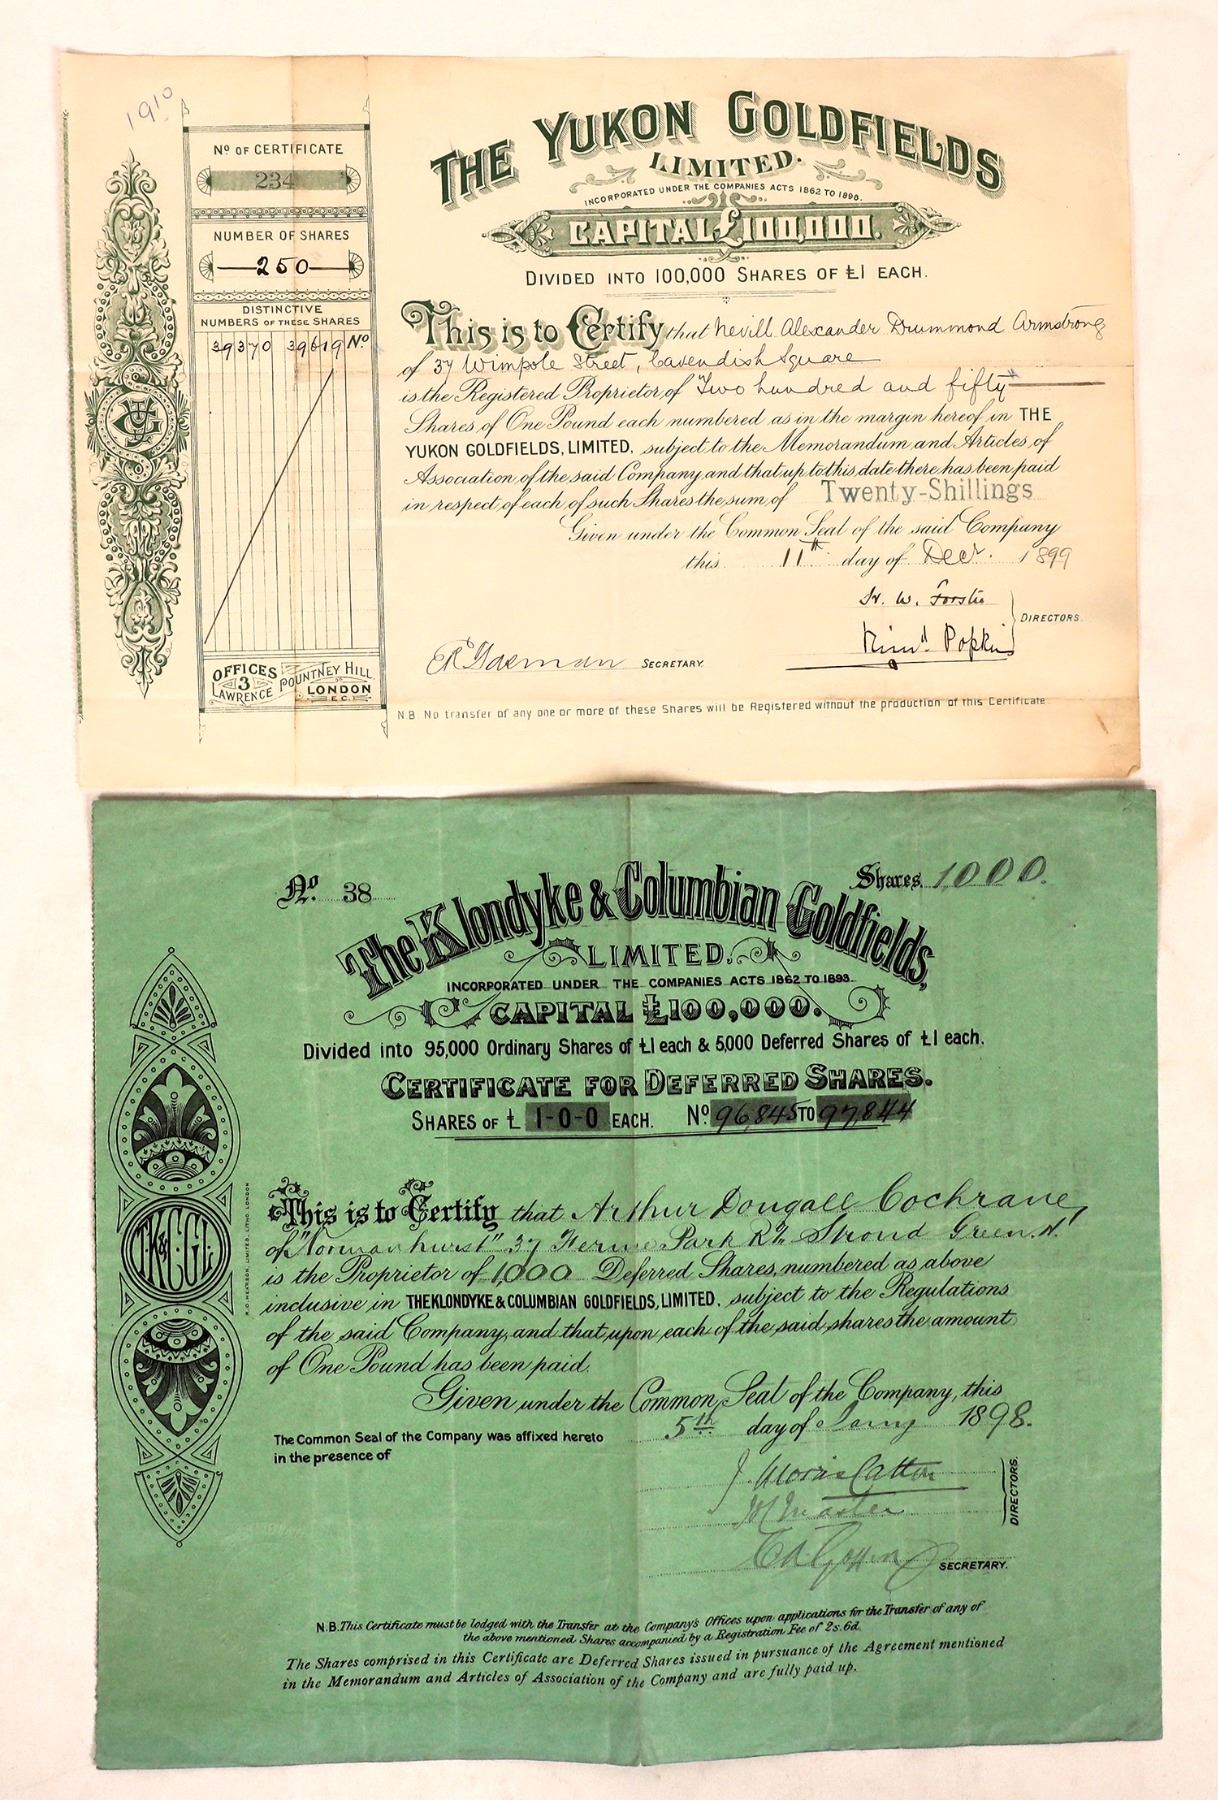 1910
Nº OF CERTIFICATE
234
NUMBER OF SHARES
250
DISTINCTIVE
NUMBERS OF THESE SHARES
39370 39619 Nº
OFFICES
3
LAWRENCE POUNTNEY HILL
LONDON
E.C.
THE YUKON GOLDFIELDS
LIMITED.
INCORPORATED UNDER THE COMPANIES ACTS 1862 TO 1890.
CAPITAL £100,000.
DIVIDED INTO 100,000 SHARES OF £1 EACH.
This is to Certify that Nevill Alexander Drummond Armstrong
of 37 Wimpole Street, Cavendish Square
is the Registered Proprietor of Two hundred and fifty
Shares of One Pound each numbered as in the margin hereof in THE
YUKON GOLDFIELDS, LIMITED, subject to the Memorandum and Articles of
Association of the said Company and that up to this date there has been paid
in respect of each of such Shares the sum of Twenty-Shillings
Given under the Common Seal of the said Company
this 11th day of Decr. 1899
DIRECTORS.
SECRETARY.
N.B. No transfer of any one or more of these Shares will be Registered without the production of this Certificate.
No. 38
Shares 1,000.
The Klondyke & Columbian Goldfields,
LIMITED.
INCORPORATED UNDER THE COMPANIES ACTS 1862 TO 1893.
CAPITAL £100,000.
Divided into 95,000 Ordinary Shares of £1 each & 5,000 Deferred Shares of £1 each.
CERTIFICATE FOR DEFERRED SHARES.
SHARES OF £ 1-0-0 EACH. Nº 96,845 TO 97,844
TK&CGL
This is to Certify that Arthur Dougall Cochrane,
of "Normanhurst" 37 Park Rd. Stroud Green. N.
is the Proprietor of 1,000 Deferred Shares, numbered as above
inclusive in THE KLONDYKE & COLUMBIAN GOLDFIELDS, LIMITED, subject to the Regulations
of the said Company, and that upon each of the said shares the amount
of One Pound has been paid.
Given under the Common Seal of the Company, this
5th day of 1898.
The Common Seal of the Company was affixed hereto
in the presence of
DIRECTORS.
SECRETARY.
N.B. This Certificate must be lodged with the Transfer at the Company's Offices upon applications for the Transfer of any of
the above mentioned Shares accompanied by a Registration Fee of 2s. 6d.
The Shares comprised in this Certificate are Deferred Shares issued in pursuance of the Agreement mentioned
in the Memorandum and Articles of Association of the Company and are fully paid up.